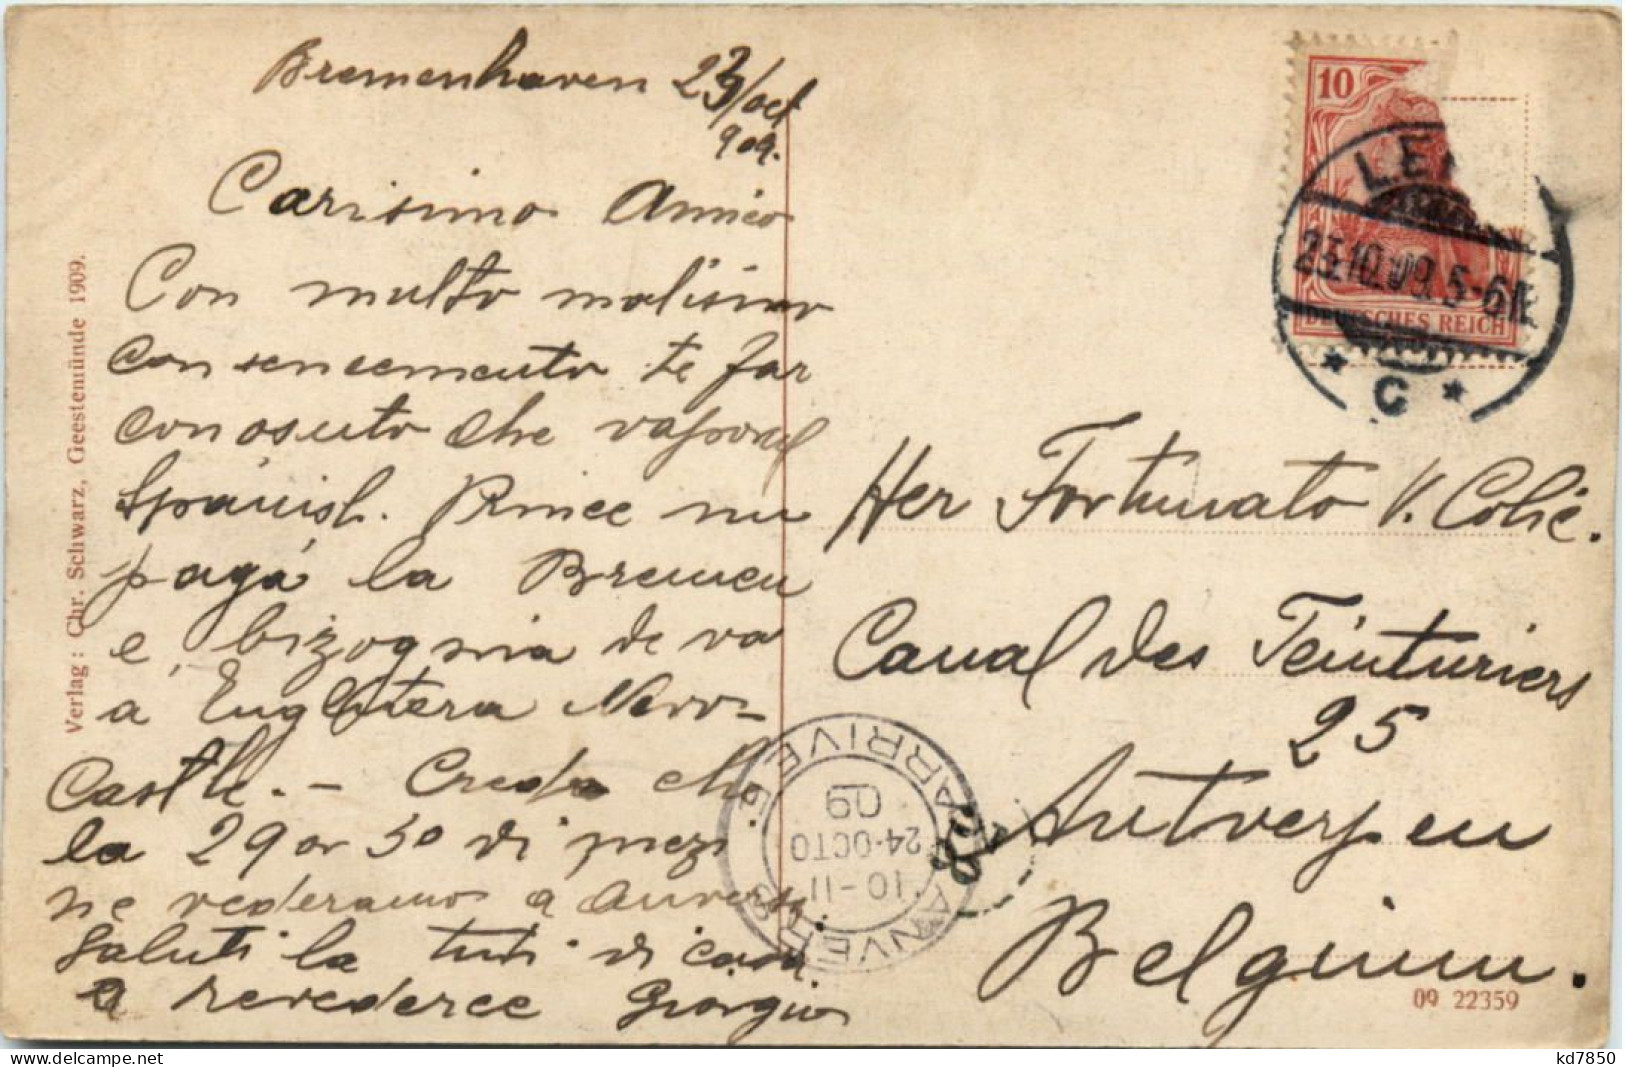 Bremenhaven 23/oct
909.
Carisimo Amico
Con multo malisimo
consencemento te far
conosuto che vaporul
Spánish. Prince nu
pagá la Bremen
e bizognia de va
á Engletera New-
Castle. - Creda che
la 29 or 30 di mezi
ne vederamo a Anversa
Saluti la tuti di casa
a revederce Giorgio
Verlag: Chr. Schwarz, Geestemünde 1909.
10
DEUTSCHES REICH
LE
23.10.09.5-6N
* C *
Her Fortunato V. Colić.
Canal des Teinturiers
25
Antverpen
Belgium.
ANVERS
10-11
24·OCTO
09
ARRIVE
09 22359
delcampe.net
kd7850